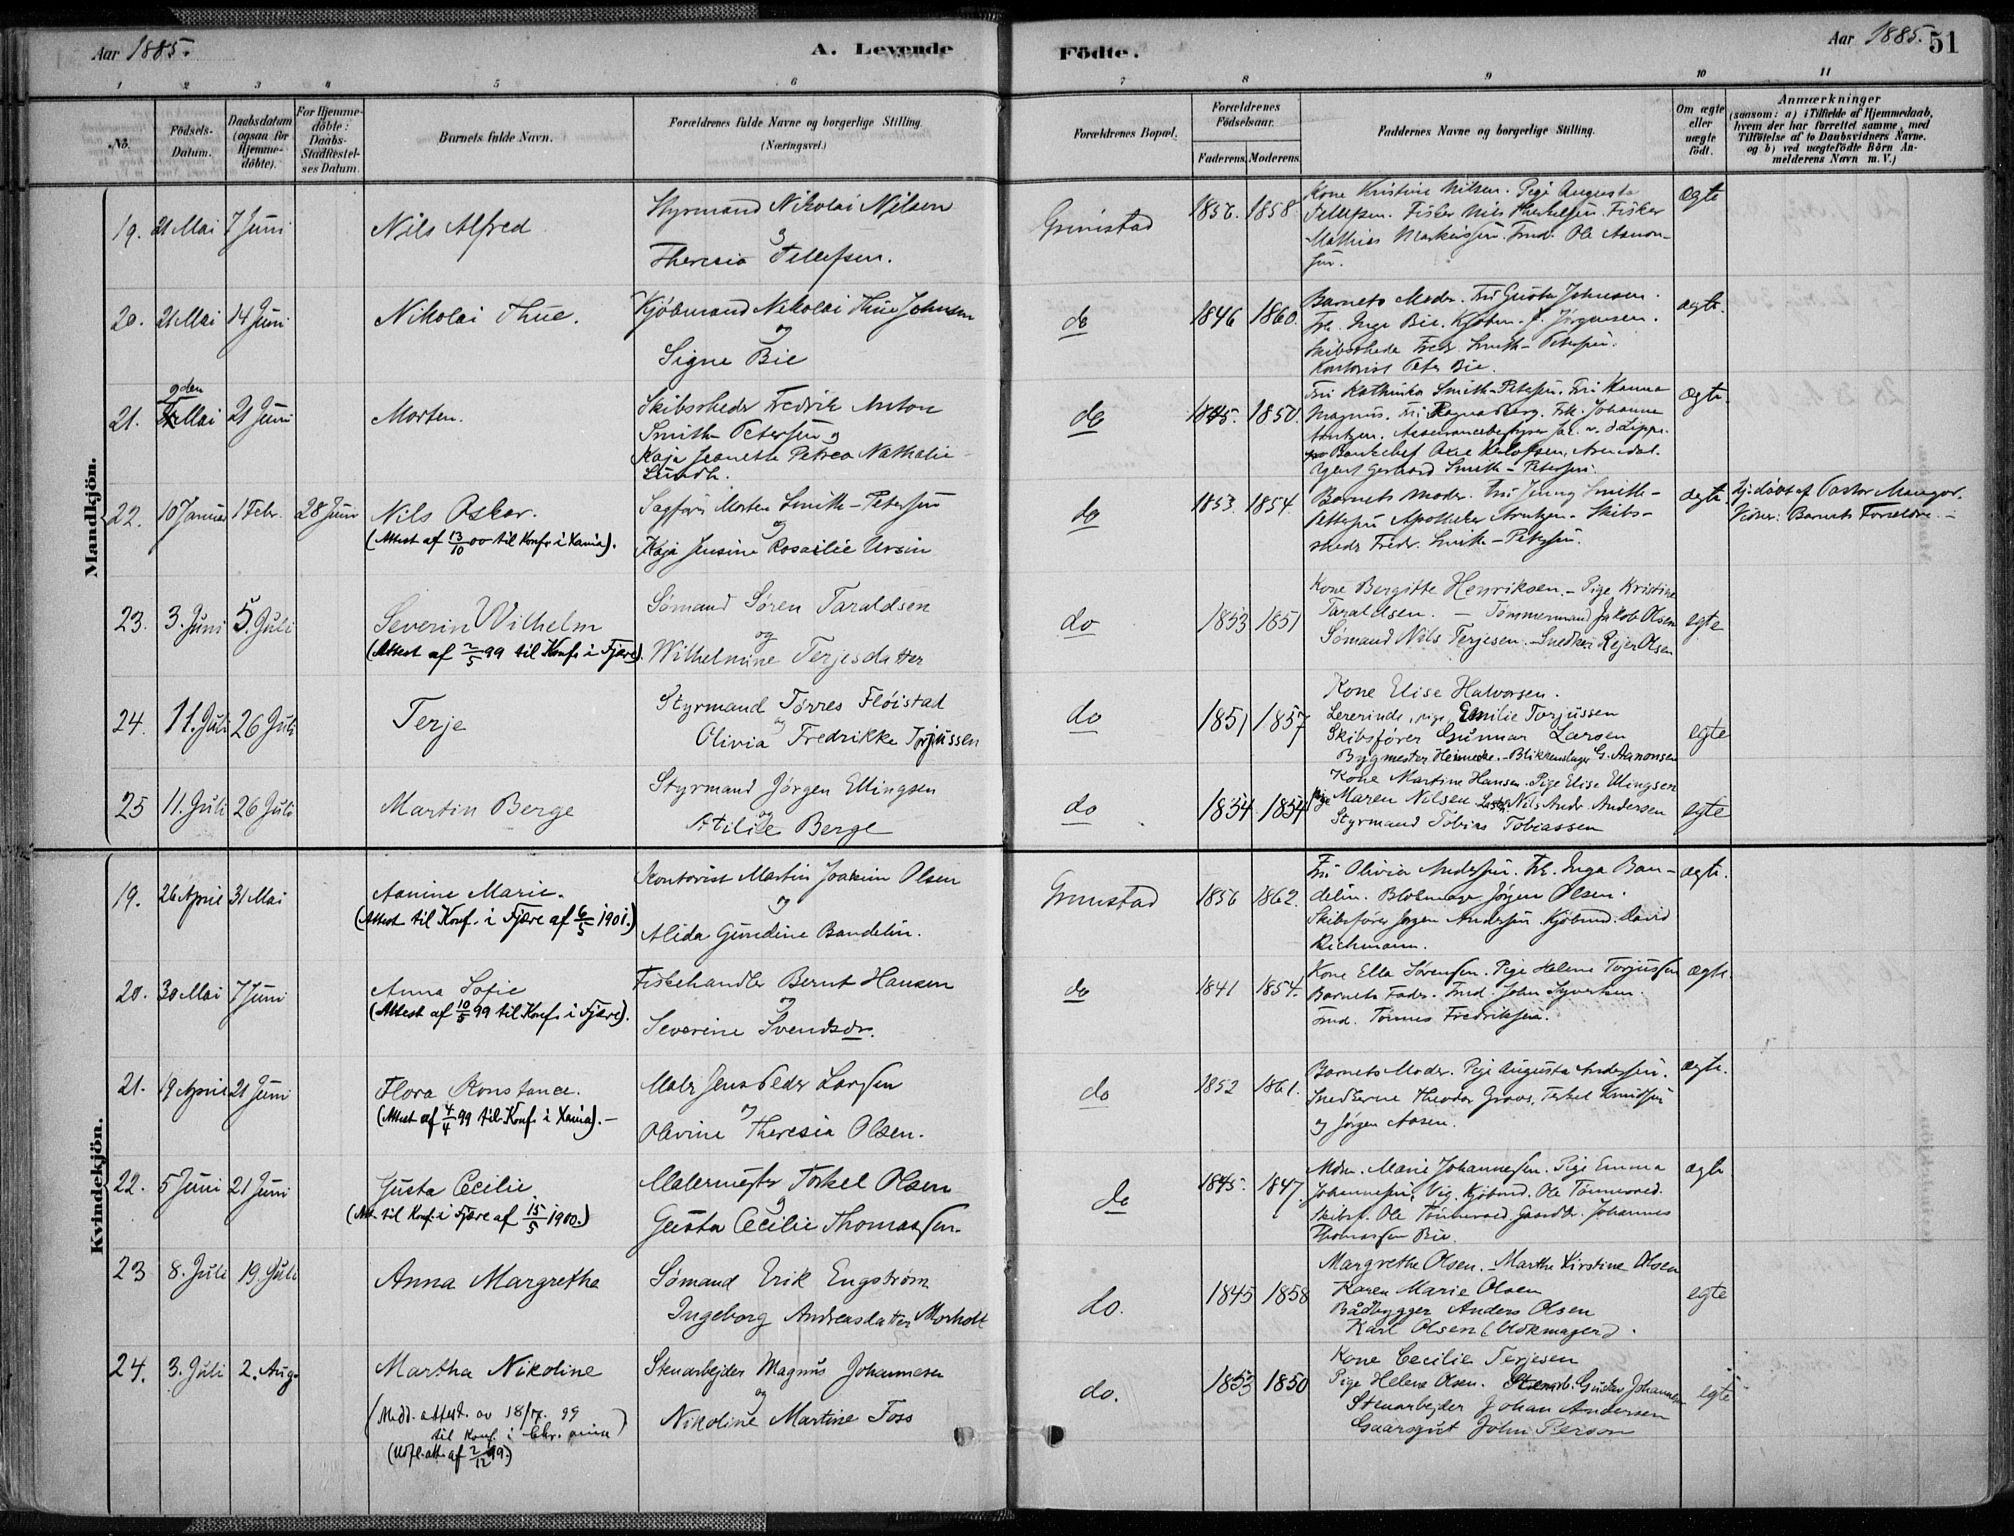 Aar 1885.
A. Levende
Födte.
Aar 1885. 51
1 2 3 4 5 6 7 8 9 10 11
No.
Födsels-Datum.
Daabsdatum (ogsaa for Hjemme-döbte).
For Hjemme-döbte: Daabs-Stadfæstel-ses Datum.
Barnets fulde Navn.
Forældrenes fulde Navne og borgerlige Stilling.
(Næringsvei.)
Forældrenes Bopæl.
Forældrenes Födselsaar.
Faderens. Moderens.
Faddernes Navne og borgerlige Stilling.
Om ægte eller uægte födt.
Anmærkninger
(saasom: a) i Tilfælde af Hjemmedaab, hvem der har forrettet samme, med Tilföielse af to Daabsvidners Navne. og b) ved uægtefödte Börn An-melderens Navn m. V.)
Mandkjön.
19. 21 Mai 7 Juni Nils Alfred
Styrmand Nikolai Nilsen
Theresia Tellefsen.
Grimstad 1856. 1858
Kone Kristine Nilsen. Pige Augusta
Tellefsen. Fisker Nils Fisker
Mathias Markussen. Ole Aanon-
sen.
ægte
20. 21 Mai 14 Juni Nikolai Thue.
Kjöbmand Nikolai Thue Johnsen
og
Signe Bie
do 1846 1860.
Barnets Moder. Gusta Johnsen.
Frk. Inga Bie. Kjöbm. Jörgensen.
Skibsrheder Fredr. Smith-Petersen.
Kontorist Peter Bie.
ægte.
21. 9den Mai 21 Juni Morten.
Skibsrheder Fredrik Anton
Smith Petersen og
Kaja Jeanette Petrea Nathalie
Lundh.
do 1845. 1850.
Fru Kathinka Smith-Petersen. Fru Hanna
Magnus. Fru Ragna Berg. Frk. Johanne
Arntzen.
Arendal.
Agent Gerhard Smith-Petersen.
ægte.
22. 10 Januar 1 Febr. 28 Juni Nils Oskar.
(Attest af 13/10 00 til Konf. i Xania).
Sagförer Morten Smith-Petersen
og
Kaja Jensine Rosailie Ursin
do 1853. 1854.
Barnets Moder. Fru Jenny Smith-
Petersen Apotheker Arntzen. Skibs-
rheder Fredr. Smith-Petersen.
ægte.
Hj.döbt af Pastor Mangor.
Vidner: Barnets Forældre.
23. 3. Juni 5. Juli Severin Wilhelm
(Attest af 2/5 99 til Konf. i Fjære).
Sömand Sören Taraldsen
og
Wilhelmine Terjesdatter
do 1853 1851
Kone Bergitte Henriksen. - Pige Kristine
Taraldsen. - Tömmermand Jakob Olsen
Sömand Nils Terjesen. - Snedker Rejer Olsen
egte
24. 11. Juli 26 Juli Terje
Styrmand Törres Flöistad
og
Olivia Fredrikke Torjussen
do 1851 1857
Kone Elise Halvorsen.
Lererinde, pige Emilie Torjussen
Skibsförer Gunnar Larsen
Bygmester Heinecke. - Blikkenslager G. Aanonsen
egte
25 11. Juli 26 Juli Martin Berge
Styrmand Jörgen Ellingsen
og
Otilie Berge
do 1834 1854
Kone Martine Hansen. Pige Elise Ellingsen
pige Maren Nilsen Nils Andr. Andersen
Styrmand Tobias Tobiassen
egte
Kvindekjön.
19. 26 April 31 Mai Aanine Marie.
(Attest til Konf. i Fjære af 6/5 1901.)
Kontorist Martin Joakim Olsen
og
Alida Gundine Bandelin.
Grimstad 1856 1862.
Fru Olivia Andersen. Frk. Inga Ban-
delin. Blokmager Jörgen Olsen.
Skibsförer Jörgen Andersen. Kjöbmd. David
Richmann.
ægte.
20. 30 Mai 7 Juni Anna Sofie
(Attest af 10/5 99 til Konf. i Fjære).
Fiskehandler Bernt Hansen
og
Severine Svendsdr.
do 1841 1854.
Kone Ella Sörensen. Pige Helene Torjussen
Barnets Fader. John Syvertsen.
Tönnes Fredriksen.
ægte
21. 19 April 21 Juni Flora Konstance.
(Attest af 4/4 99 til Konf. i Xania). -
Maler Jens Peder Larsen
og
Olevine Theresia Olsen.
do 1852 1861.
Barnets Moder. Pige Augusta Andersen.
Snedkerne Theodor Groos, Terkel Knudsen
og Jörgen Aasen.
ægte.
22. 5 Juni 21 Juni Gusta Cecilie
(Att. til Konf. i Fjære af 15/5 1900.)
Malermester Torkel Olsen
og
Gusta Cecilie Thomassen.
do 1845. 1847
Mdm. Marie Johannessen. Pige Emma
Johannessen, Vig. Kjöbmd. Ole Tönnevold.
Skibsf. Ole Tönnevold. Gaardbr. Johannes
Thomassen Bie.
ægte
23 8. Juli 19. Juli Anna Margretha
Sömand Erik Engström
Ingeborg Andreasdatter Morholt
do. 1845 1858
Margrethe Olsen. - Marthe Kirstine Olsen
Karen Marie Olsen
Bådbygger Anders Olsen
Karl Olsen (blokmager).
egte
24. 3. Juli 2. Aug. Martha Nikoline
(Medd. attest. av 18/7. 99
til Konf. i Chr.ania)
(Udfl.att. af 2/12 99.)
Stenarbejder Magnus Johannesen
og
Nikoline Martine Foss
do. 1853 1850
Kone Cecilie Terjesen
Pige Helene Olsen. Stenarb. Gustav Johannesen
Stenarbejder Johan Andersen
Gaardsgut John Person
egte